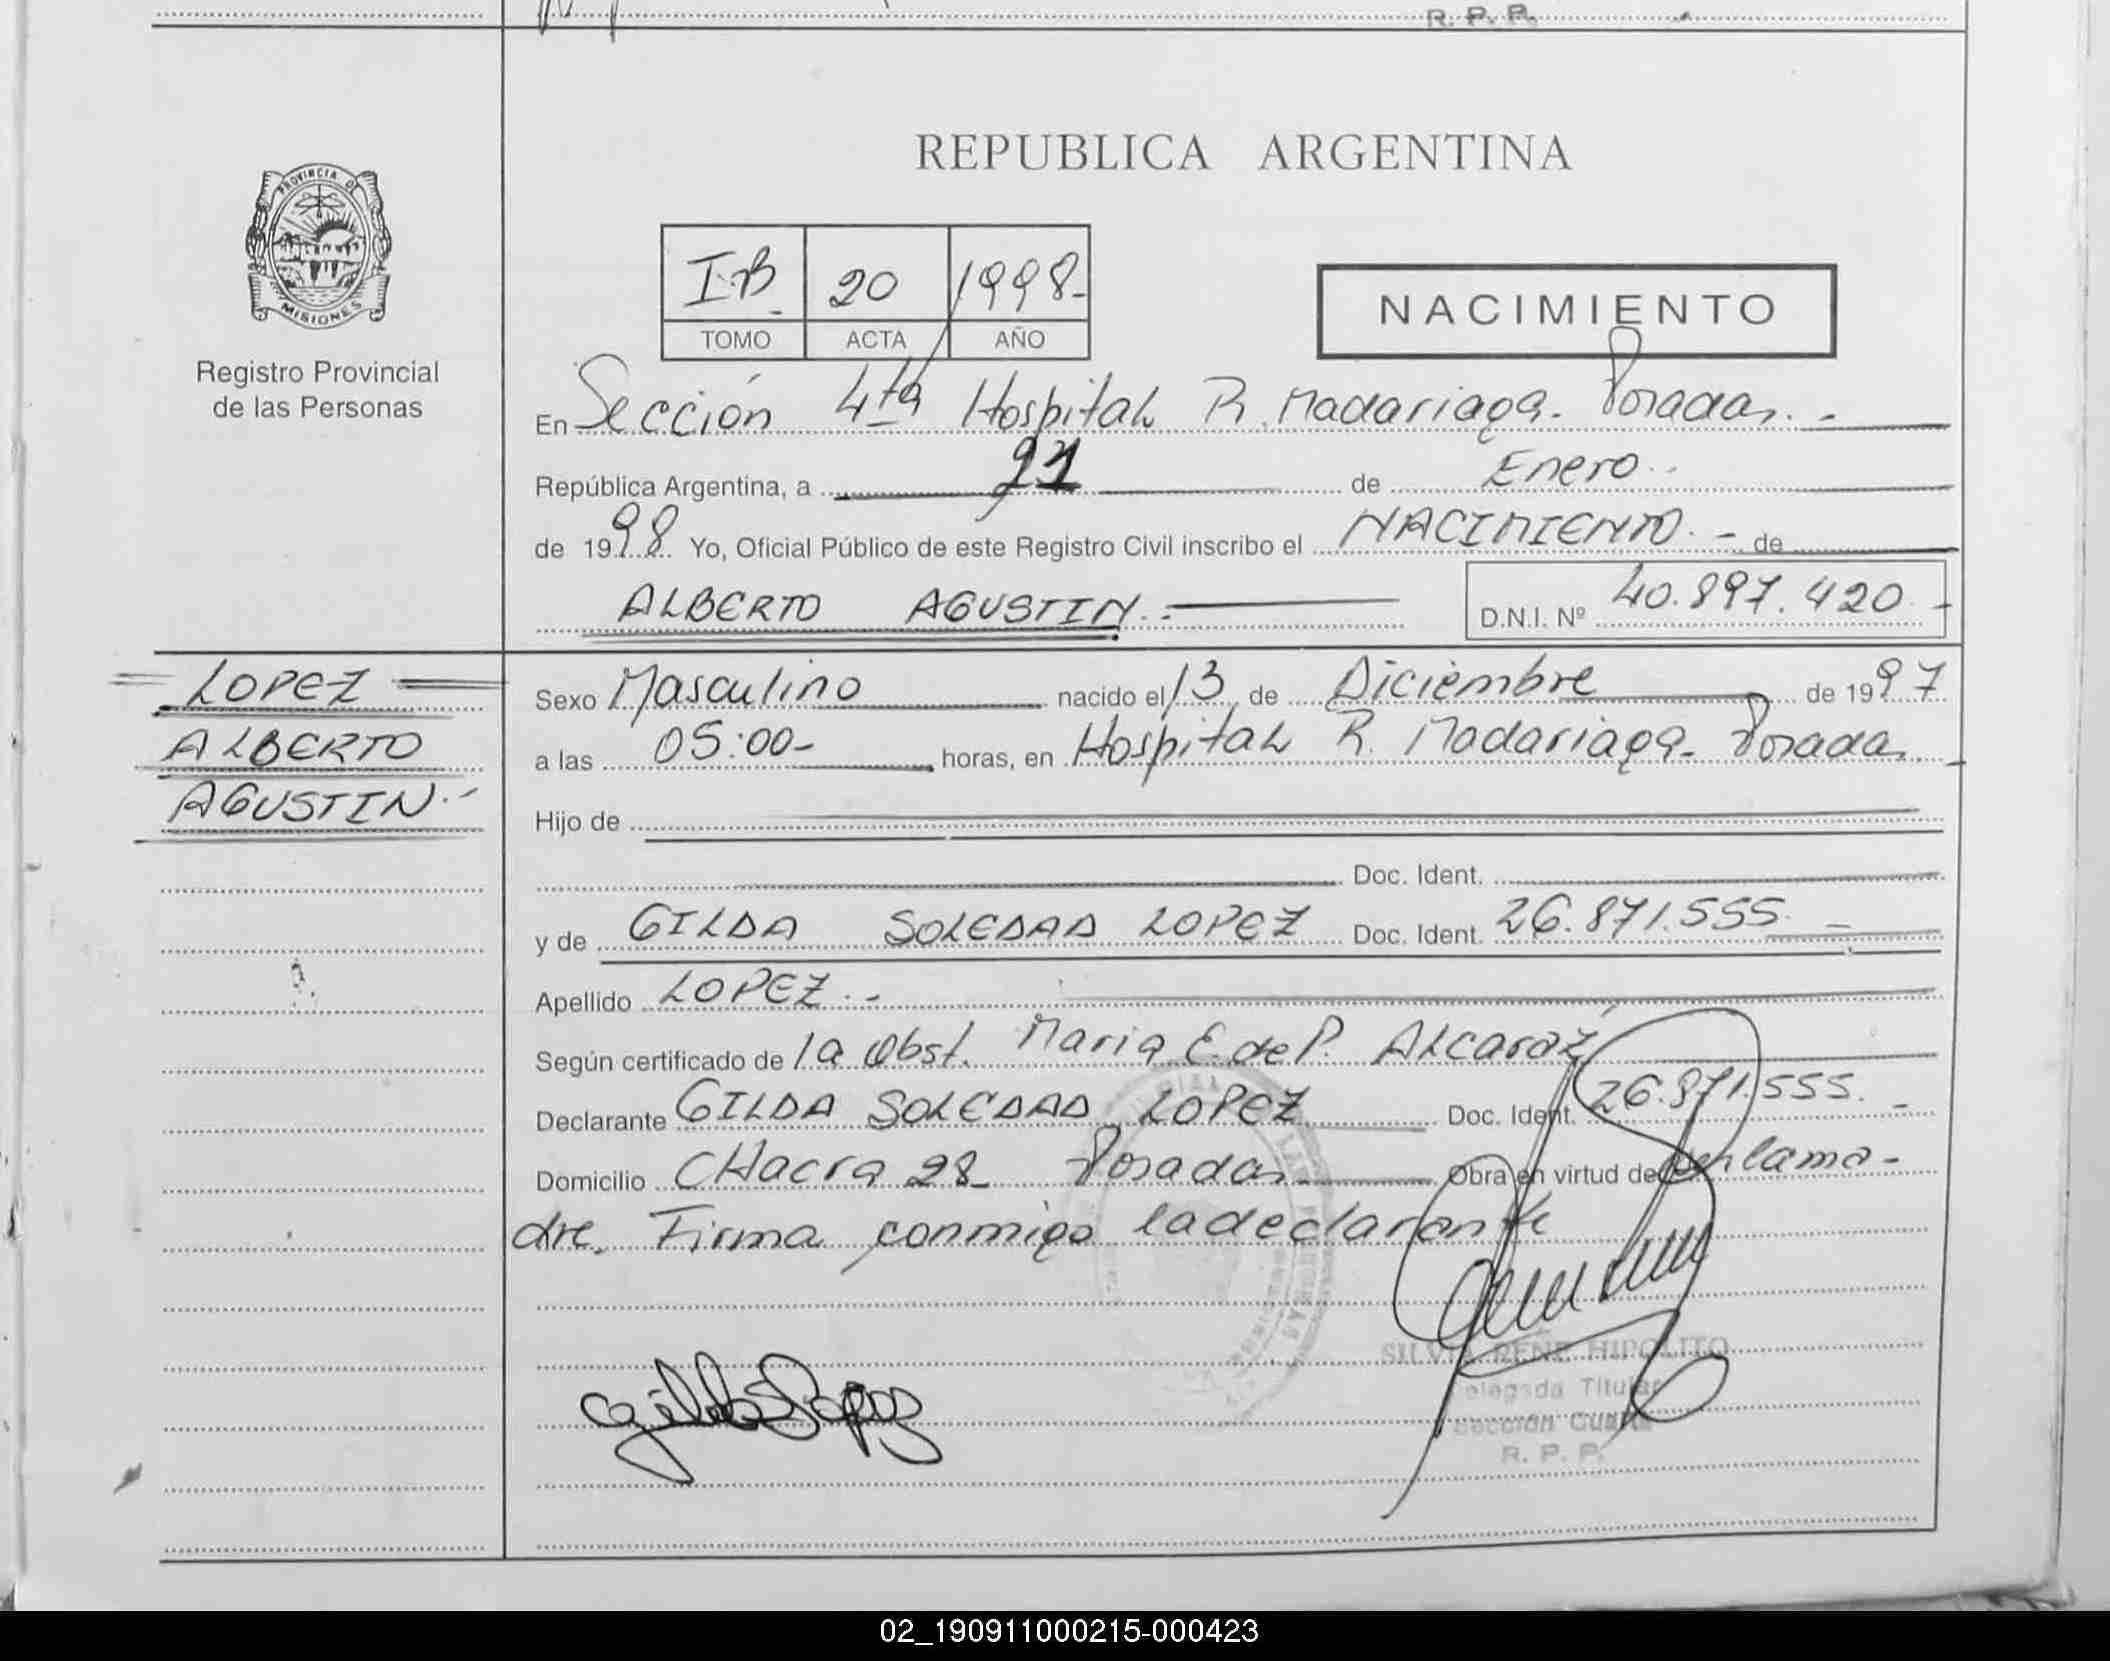 R. P. P.
REPUBLICA ARGENTINA
PROVINCIA DE
MISIONES
Registro Provincial
de las Personas
I-B 20 1998-
TOMO ACTA AÑO
NACIMIENTO
En Sección 4ta Hospital R. Madariaga. Posadas. -
República Argentina, a 21 de Enero
de 1998 Yo, Oficial Público de este Registro Civil inscribo el NACIMIENTO. - de
ALBERTO AGUSTIN.-
D.N.I. Nº 40.897.420 -
LOPEZ
ALBERTO
AGUSTIN.-
Sexo Masculino nacido el 13 de Diciembre de 1997
a las 05:00- horas, en Hospital R. Madariaga- Posadas. -
Hijo de
Doc. Ident.
y de GILDA SOLEDAD LOPEZ Doc. Ident. 26.871.555. -
Apellido LOPEZ. -
Según certificado de la Obst. Maria E. de P. Alcaraz
Declarante GILDA SOLEDAD LOPEZ Doc. Ident. 26.871.555. -
Domicilio CHacra 28- Posadas. Obra en virtud de ser la ma-
dre. Firma conmigo la declarante
SILVIA RENE HIPOLITO
Delegada Titular
Sección Cuarta
R. P. P.
02_190911000215-000423